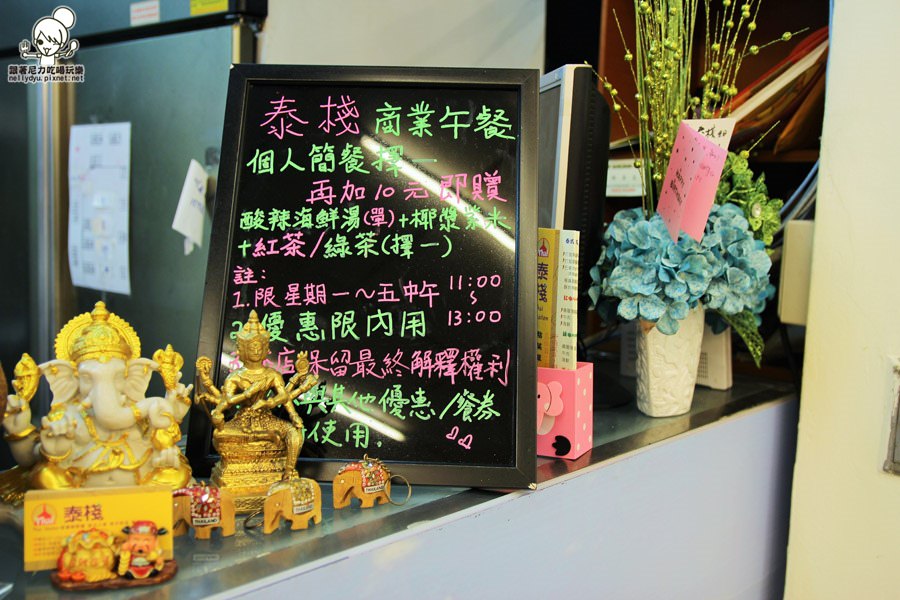 跟著尼力吃喝玩樂
nellydyu.pixnet.net
泰棧 商業午餐
個人簡餐擇一
再加10元即贈
酸辣海鮮湯(單)+椰漿紫米
+紅茶/綠茶(擇一)
註:
1.限星期一~五中午 11:00
~
13:00
2.優惠限內用
店保留最終解釋權利
與其他優惠/餐券
使用.
泰棧
Thai
泰棧
THAILAND
THAILAND